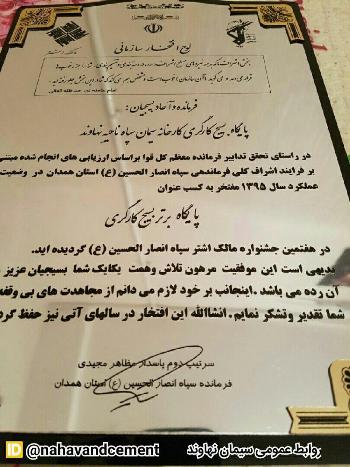 لوح افتخار سازمانی
فرمانده و آحاد بسیجیان:
پایگاه بسیج کارگری کارخانه سیمان سپاه ناحیه نهاوند
در راستای تحقق تدابیر فرمانده معظم کل قوا براساس ارزیابی های انجام شده مبتنی
بر فرایند اشراف کلی فرماندهی سپاه انصار الحسین (ع) استان همدان در وضعیت
عملکرد سال ۱۳۹۵ مفتخر به کسب عنوان
پایگاه برتر بسیج کارگری
در هفتمین جشنواره مالک اشتر سپاه انصار الحسین (ع) گردیده اید.
بدیهی است این موفقیت مرهون تلاش وهمت یکایک شما بسیجیان عزیز
آن رده می باشد. اینجانب بر خود لازم می دانم از مجاهدت های بی وقفه
شما تقدیر وتشکر نمایم. انشاالله این افتخار در سالهای آتی نیز حفظ گردد
سرتیپ دوم پاسدار مظاهر مجیدی
فرمانده سپاه انصار الحسین (ع) استان همدان
ID @nahavandcement روابط عمومی سیمان نهاوند